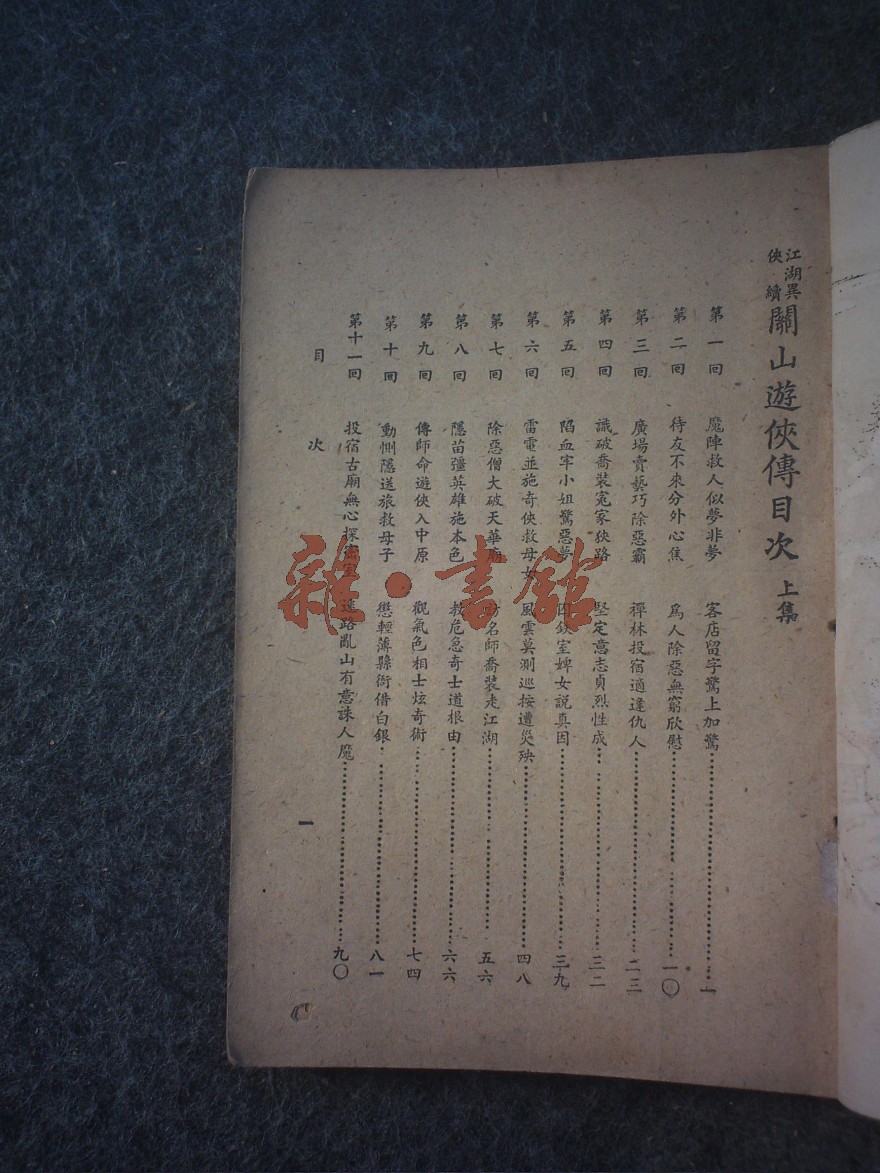 江湖異俠 續 關山遊俠傳目次 上集
第一回 魔陣救人似夢非夢 客店留字驚上加驚 一
第二回 待友不來分外心焦 爲人除惡無窮欣慰 一〇
第三回 廣場賣藝巧除惡霸 禪林投宿適逢仇人 二三
第四回 識破喬裝寃家狹路 堅定意志貞烈性成 三二
第五回 陷血牢小姐驚惡夢 囚鉄室婢女説真因 三九
第六回 雷電並施奇俠救母女 風雲莫測巡按遭災殃 四八
第七回 除惡僧大破天華廟 名師喬裝走江湖 五六
第八回 隱苗彊英雄施本色 救危急奇士道根由 六六
第九回 傳師命遊俠入中原 觀氣色相士炫奇術 七四
第十回 動惻隱送旅救母子 懲輕薄縣衙借白銀 八一
第十一回 投宿古廟無心探密室 迷路亂山有意誅人魔 九〇
目次
一
雜·書館